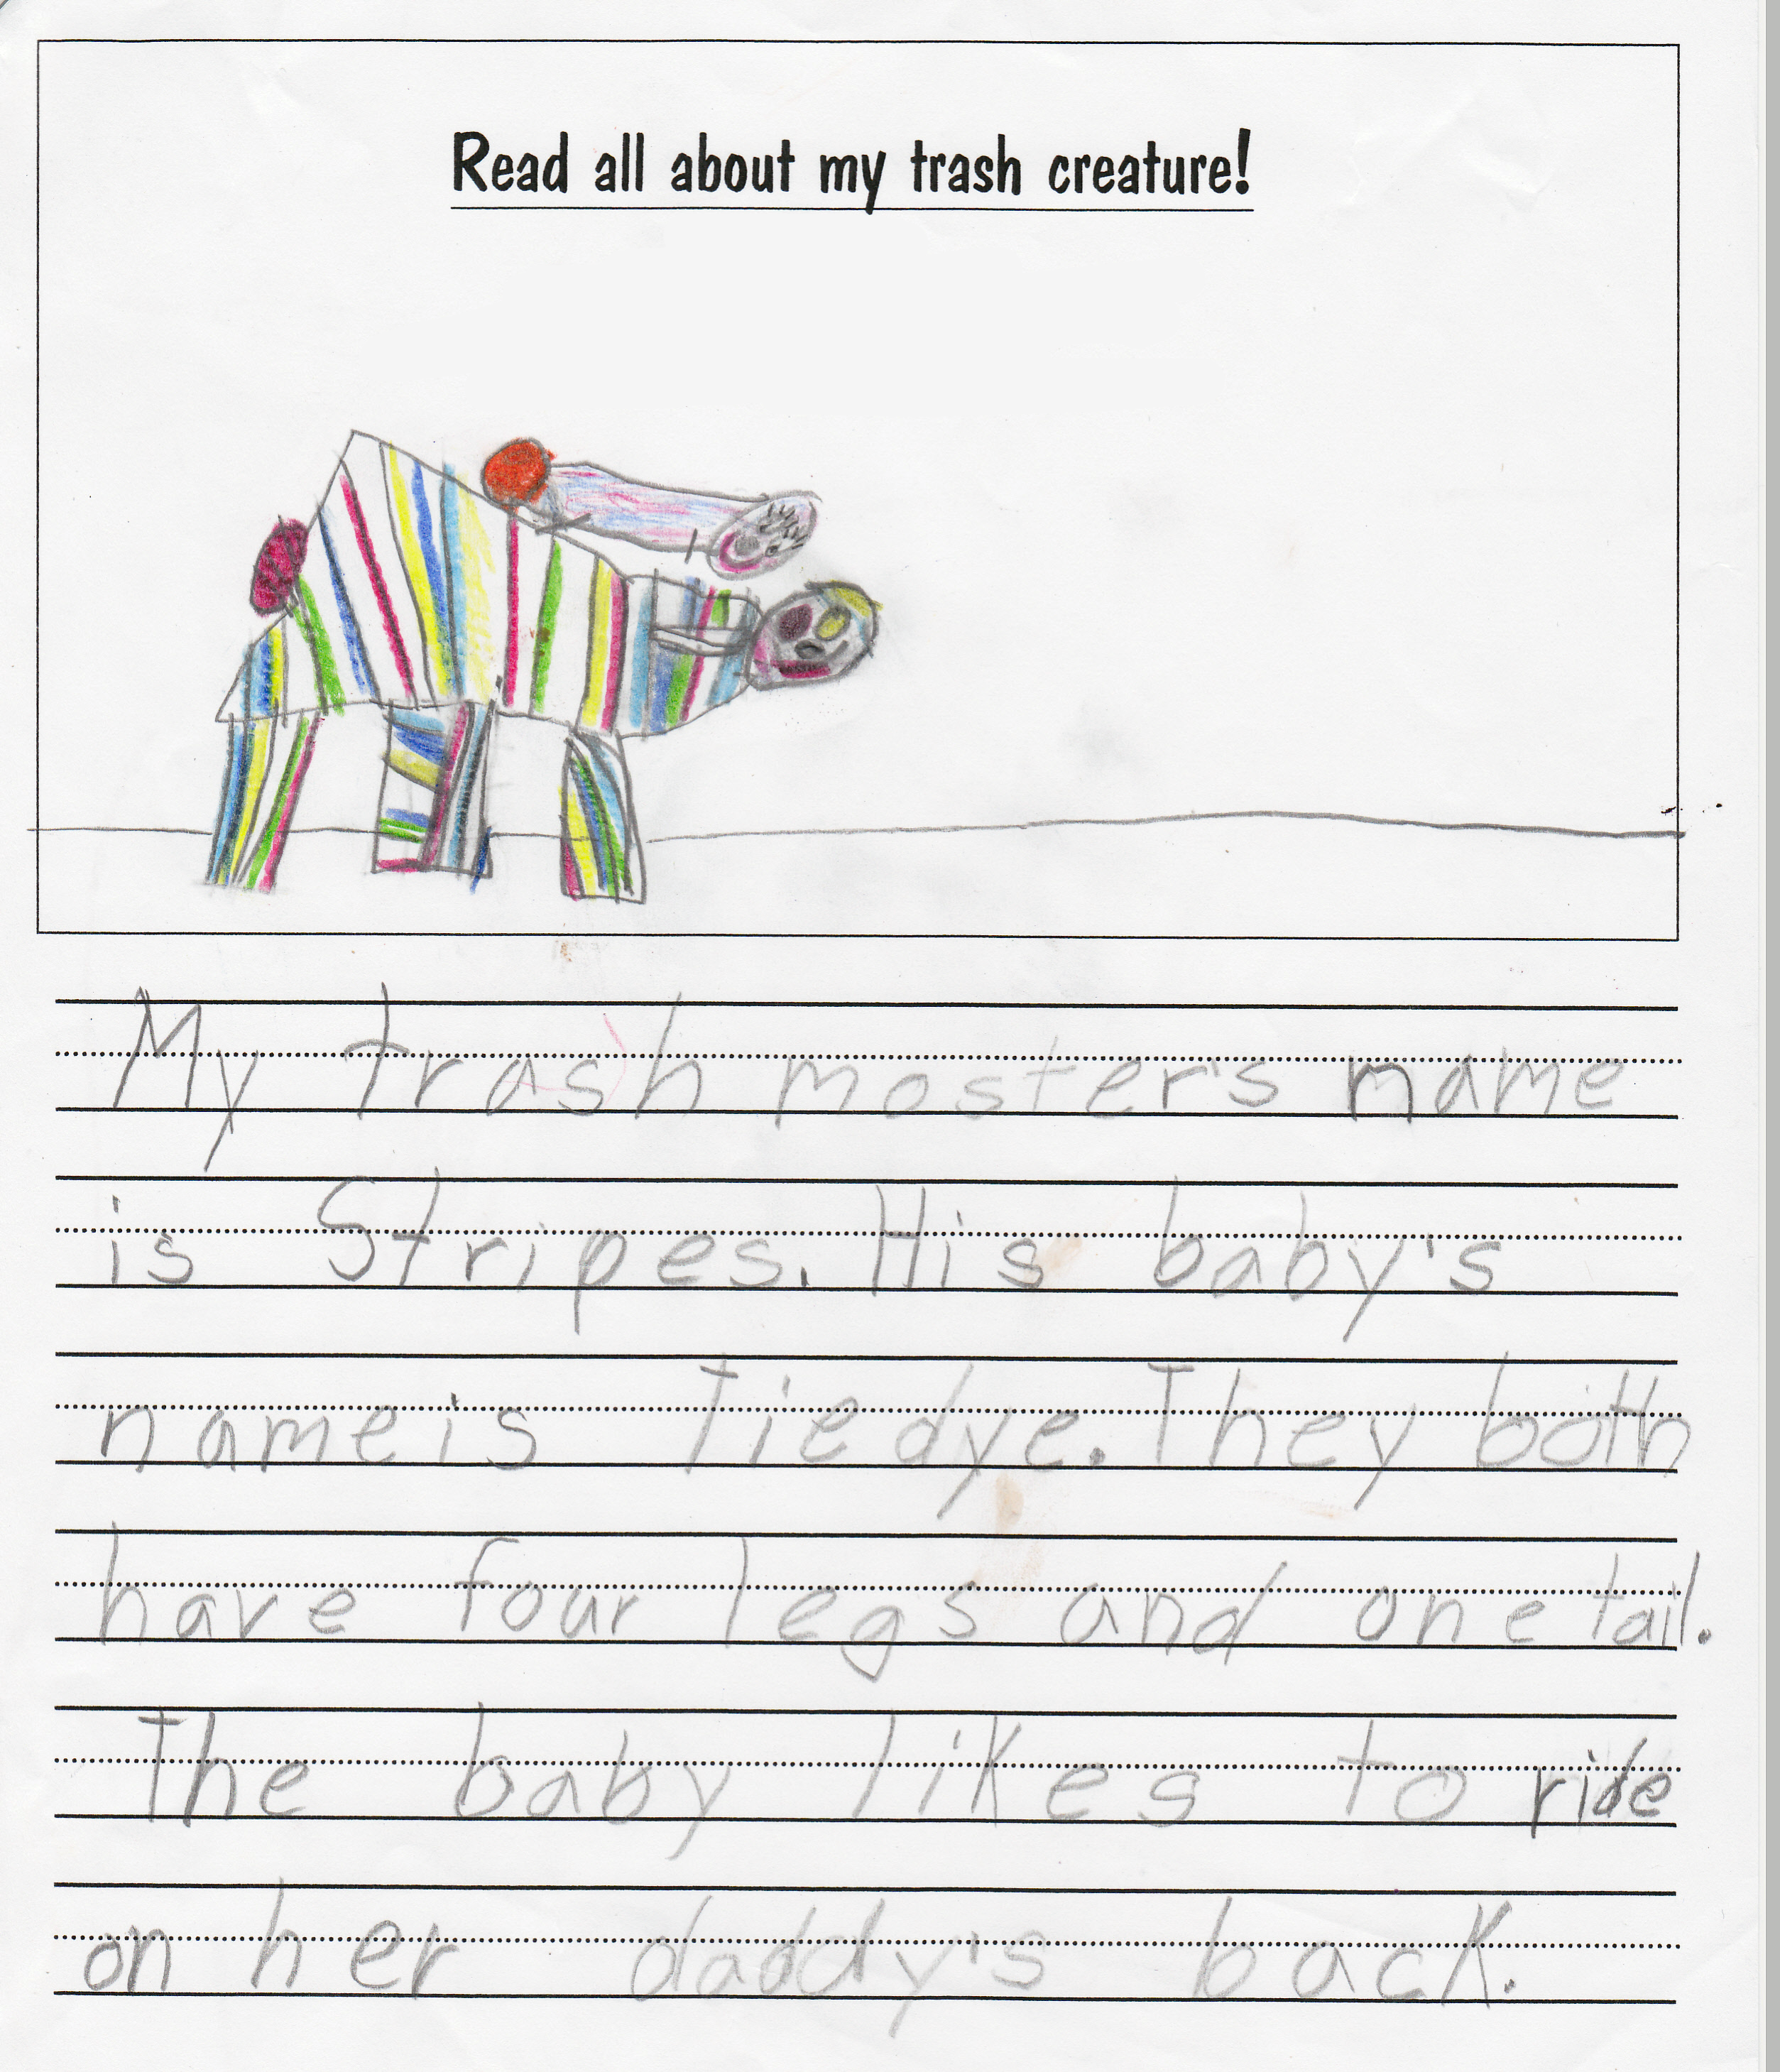 Read all about my trash creature!
My trash moster's name
is Stripes. His baby's
name is Tiedye. They both
have four legs and one tail.
The baby likes to ride
on her daddy's back.